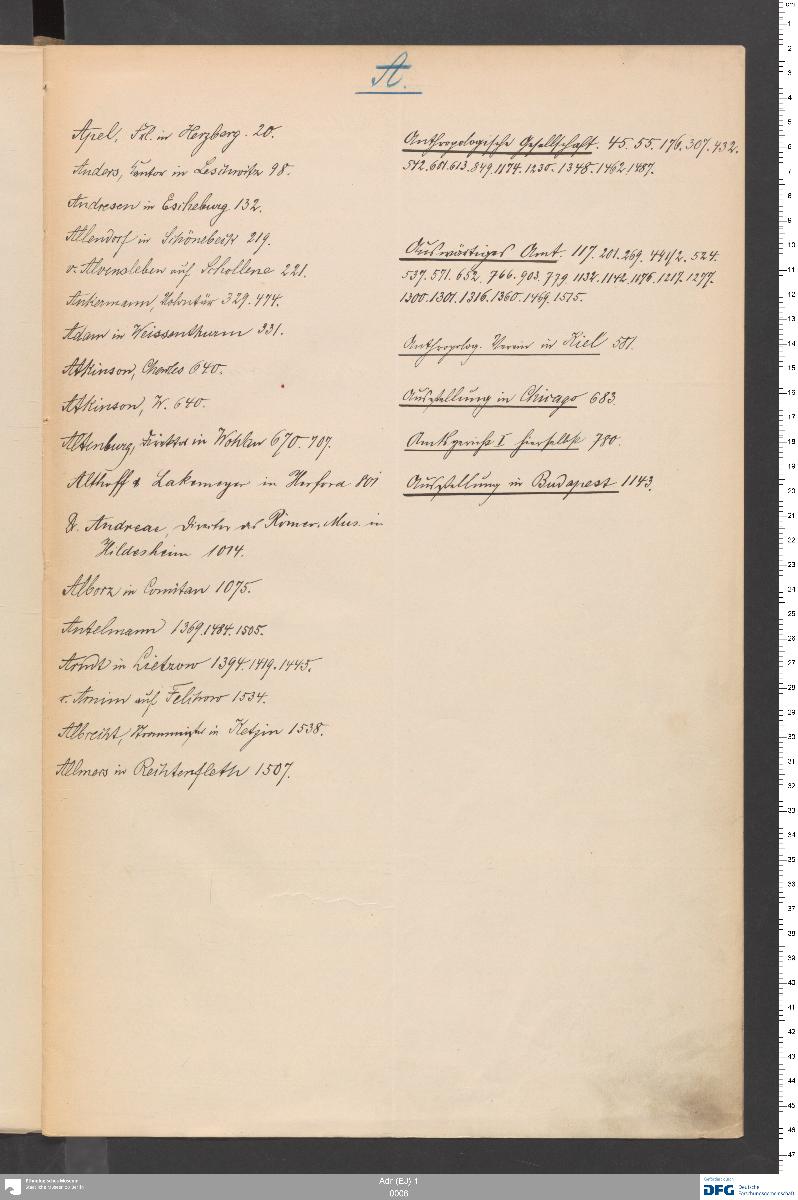 A.
Apel, Frl. in Herzberg. 20.
Anders, Kantor in Leschwitz 98.
Andresen in Escheburg 132.
Allendorf in Schönebeck 219.
v. Alvensleben auf Schollene 221.
Ankermann, Volontär 329. 474.
Adam in Weissenthurm 331.
Atkinson, Charles 640.
Atkinson, W. 640.
Altenburg, Direktor in Wohlau 670. 707.
Althoff & Lakemeyer in Herford 801
Dr. Andreae, Director des Römer-Mus. in
Hildesheim 1014.
Alborz in Comitan 1075.
Antelmann 1369. 1484. 1505.
Arndt in Lietzow 1394. 1419. 1445.
v. Arnim auf Felchow 1534.
Albrecht, in Ketzin 1538.
Allmers in Rechtenfleth 1507.
Anthropologische Gesellschaft. 45. 55. 176. 307. 432.
542. 601. 613. 849. 1174. 1230. 1348. 1462. 1487.
Auswärtiges Amt. 117. 201. 269. 441/2. 524.
537. 571. 652. 766. 903. 779 1132. 1142. 1176. 1217. 1277.
1300. 1301. 1316. 1360. 1469. 1515.
Anthropolog. Verein in Kiel 581.
Ausstellung in Chicago 683.
Amtsgericht I hierselbst 780.
Ausstellung in Budapest 1143.
Ethnologisches Museum
Staatliche Museen zu Berlin
Adr (EJ) 1
0006
Gefördert durch
DFG Deutsche
Forschungsgemeinschaft